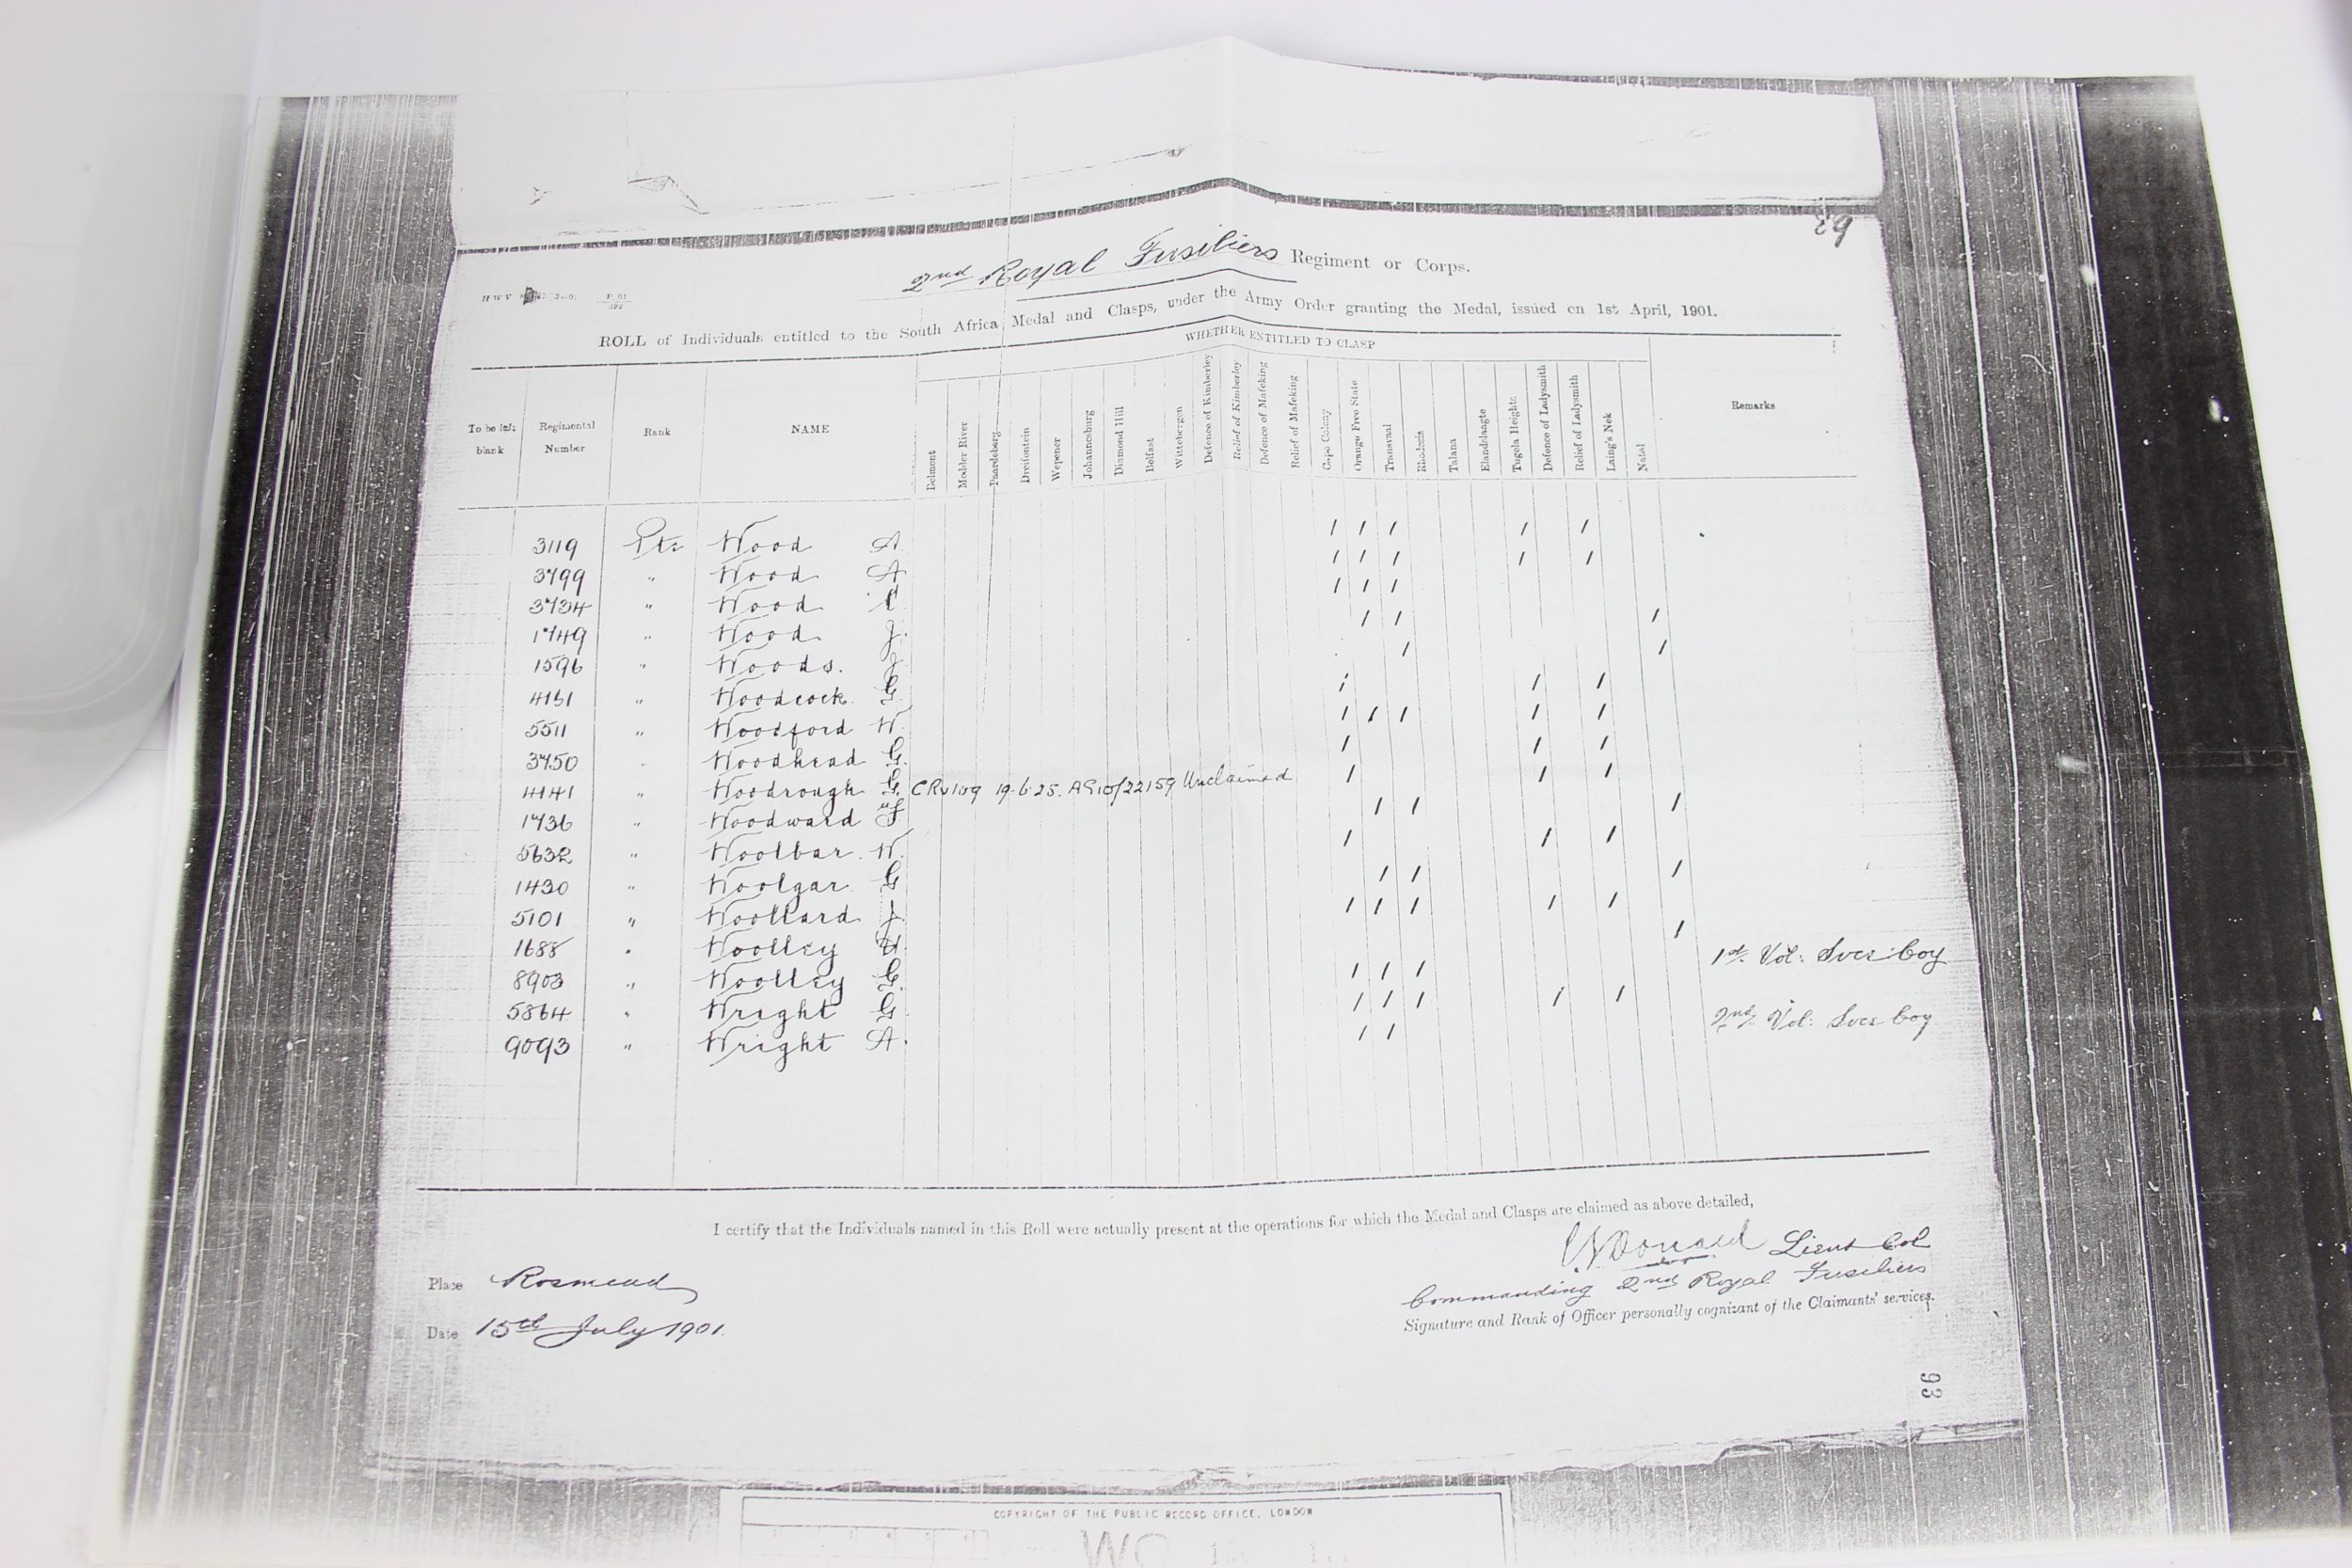 89
2nd Royal Fusiliers Regiment or Corps.
ROLL of Individuals entitled to the South Africa Medal and Clasps, under the Army Order granting the Medal, issued on 1st April, 1901.
WHETHER ENTITLED TO CLASP
To be left blank
Regimental Number
Rank
NAME
Belmont
Modder River
Paardeberg
Dreifontein
Wepener
Johannesburg
Diamond Hill
Belfast
Wittebergen
Defence of Kimberley
Relief of Kimberley
Defence of Mafeking
Relief of Mafeking
Cape Colony
Orange Free State
Transvaal
Rhodesia
Talana
Elandslaagte
Tugela Heights
Defence of Ladysmith
Relief of Ladysmith
Laing's Nek
Natal
Remarks
3119 Pte Wood A / / / / /
3799 " Wood A / / / / /
3734 " Wood / / /
1749 " Wood J. / / /
1596 " Woods. J. / /
4151 " Woodcock G / / /
5511 " Woodford W / / / / /
3750 Woodhead G. / / /
4141 " Woodrough G. 19.6.25. Unclaimed / / /
1736 " Woodward / / /
5632 " Woolbar. W. / / /
1430 " Woolgar G / / /
5101 " Woollard J. / / / / /
1688 " Woolley / 1st Vol: Svce Coy
8903 " Woolley G. / / /
5864 " Wright G. / / / / / 2nd Vol: Svce Coy
9093 " Wright A. / /
I certify that the Individuals named in this Roll were actually present at the operations for which the Medal and Clasps are claimed as above detailed,
Place Rosmead
Date 15th July 1901.
Donald Lieut Col
Commanding 2nd Royal Fusiliers
Signature and Rank of Officer personally cognizant of the Claimants' services.
93
COPYRIGHT OF THE PUBLIC RECORD OFFICE, LONDON
WO